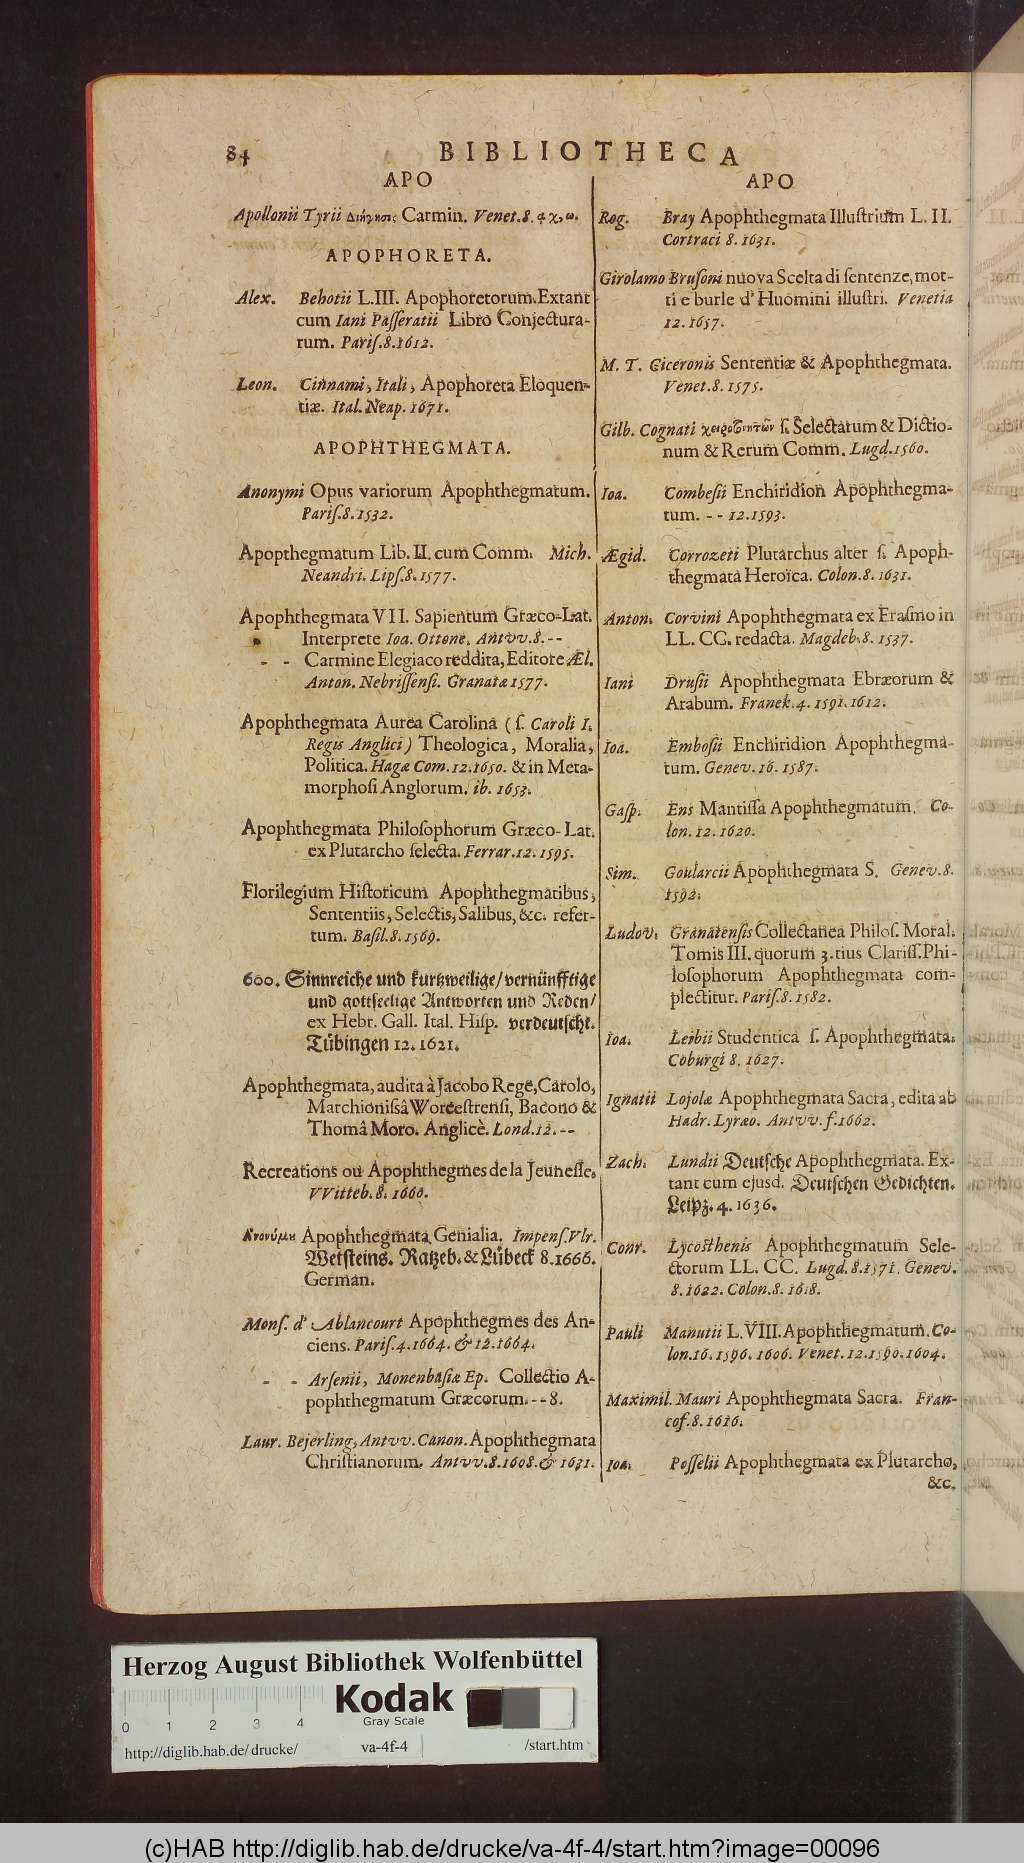 84
BIBLIOTHECA
APO
Apollonii Tyrii Διήγησις Carmin. Venet. 8.
APOPHORETA.
Alex. Behotii L.III. Apophoretorum. Extant
cum Iani Passeratii Libro Conjectura-
rum. Paris. 8. 1612.
Leon. Cinnami, Itali, Apophoreta Eloquen-
tiæ. Ital. Neap. 1671.
APOPHTHEGMATA.
Anonymi Opus variorum Apophthegmatum.
Paris. 8. 1532.
Apopthegmatum Lib. II. cum Comm. Mich.
Neandri. Lips. 8. 1577.
Apophthegmata VII. Sapientum Græco-Lat.
Interprete Ioa. Ottone, Antvv. 8. --
- - Carmine Elegiaco reddita, Editore Æl.
Anton. Nebrissensi. Granatæ 1577.
Apophthegmata Aurea Carolina ( ſ. Caroli I.
Regis Anglici ) Theologica, Moralia,
Politica. Hagæ Com. 12. 1650. & in Meta-
morphosi Anglorum. ib. 1653.
Apophthegmata Philoſophorum Græco-Lat.
ex Plutarcho ſelecta. Ferrar. 12. 1595.
Florilegium Hiſtoricum Apophthegmatibus,
Sententiis, Selectis, Salibus, &c. refer-
tum. Basil. 8. 1569.
600. Sinnreiche und kurtzweilige/ vernünfftige
und gottseelige Antworten und Reden/
ex Hebr. Gall. Ital. Hiſp. verdeutscht.
Tübingen 12. 1621.
Apophthegmata, audita à Jacobo Rege, Carolo,
Marchionisâ Worceſtrenſi, Bacono &
Thomâ Moro. Anglicè. Lond. 12. --
Recreations ou Apophthegmes de la Jeuneſſe.
VVitteb. 8. 1660.
Ανονύμȣ Apophthegmata Genialia. Impens. Vlr.
Wetsteins. Ratzeb. & Lübeck 8. 1666.
German.
Mons. d' Ablancourt Apophthegmes des An-
ciens. Paris. 4. 1664. & 12. 1664.
- - Arsenii, Monenbasiæ Ep. Collectio A-
pophthegmatum Græcorum. -- 8.
Laur. Bejerling, Antvv. Canon. Apophthegmata
Chriſtianorum. Antvv. 8. 1608. & 1631.
APO
Rog. Bray Apophthegmata Illuſtrium L. II.
Cortraci 8. 1631.
Girolamo Brusoni nuova Scelta di ſentenze, mot-
ti e burle d'Huomini illuſtri. Venetia
12. 1657.
M. T. Ciceronis Sententiæ & Apophthegmata.
Venet. 8. 1575.
Gilb. Cognati ſ. Selectarum & Dictio-
num & Rerum Comm. Lugd. 1560.
Ioa. Combesii Enchiridion Apophthegma-
tum. - - 12. 1593.
Ægid. Corrozeti Plutarchus alter ſ. Apoph-
thegmata Heroïca. Colon. 8. 1631.
Anton. Corvini Apophthegmata ex Eraſmo in
LL. CC. redacta. Magdeb. 8. 1537.
Iani Drusii Apophthegmata Ebræorum &
Arabum. Franek. 4. 1591. 1612.
Ioa. Embosii Enchiridion Apophthegma-
tum. Genev. 16. 1587.
Gasp. Ens Mantiſſa Apophthegmatum. Co-
lon. 12. 1620.
Sim. Goularcii Apophthegmata S. Genev. 8.
1592.
Ludov. Granatensis Collectanea Philoſ. Moral.
Tomis III. quorum 3. tius Clariſſ. Phi-
loſophorum Apophthegmata com-
plectitur. Paris. 8. 1582.
Ioa. Leibii Studentica ſ. Apophthegmata.
Coburgi 8. 1627.
Ignatii Lojolæ Apophthegmata Sacra, edita ab
Hadr. Lyræo. Antvv. f. 1662.
Zach. Lundii Deutsche Apophthegmata. Ex-
tant cum ejusd. Deutschen Gedichten.
Leipz. 4. 1636.
Conr. Lycosthenis Apophthegmatum Sele-
ctorum LL. CC. Lugd. 8. 1571. Genev.
8. 1622. Colon. 8. 1618.
Pauli Manutii L. VIII. Apophthegmatum. Co-
lon. 16. 1596. 1606. Venet. 12. 1590. 1604.
Maximil. Mauri Apophthegmata Sacra. Fran-
cof. 8. 1616.
Ioa. Posselii Apophthegmata ex Plutarcho,
&c.
Herzog August Bibliothek Wolfenbüttel
Kodak
Gray Scale
0 1 2 3 4
http://diglib.hab.de/ drucke/ va-4f-4 /start.htm
(c)HAB http://diglib.hab.de/drucke/va-4f-4/start.htm?image=00096